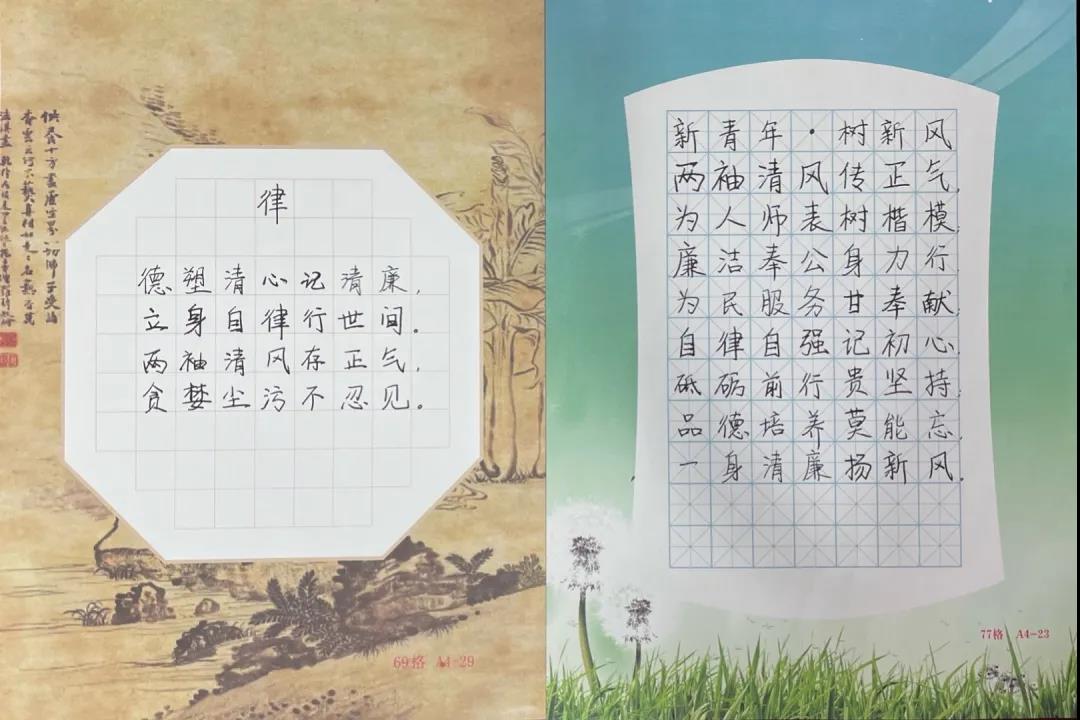 律
德塑清心记清廉，
立身自律行世间。
两袖清风存正气，
贪婪尘污不忍见。
69格 A4-29
新青年·树新风
两袖清风传正气，
为人师表树楷模。
廉洁奉公身力行，
为民服务甘奉献。
自律自强记初心，
砥砺前行贵坚持。
品德培养莫能忘，
一身清廉扬新风。
77格 A4-23